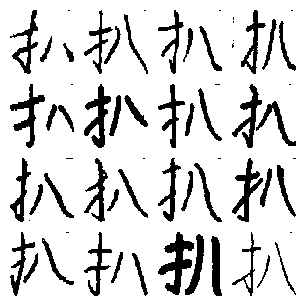 扒扒扒扒
扒扒扒扒
扒扒扒扒
扒扒扒扒